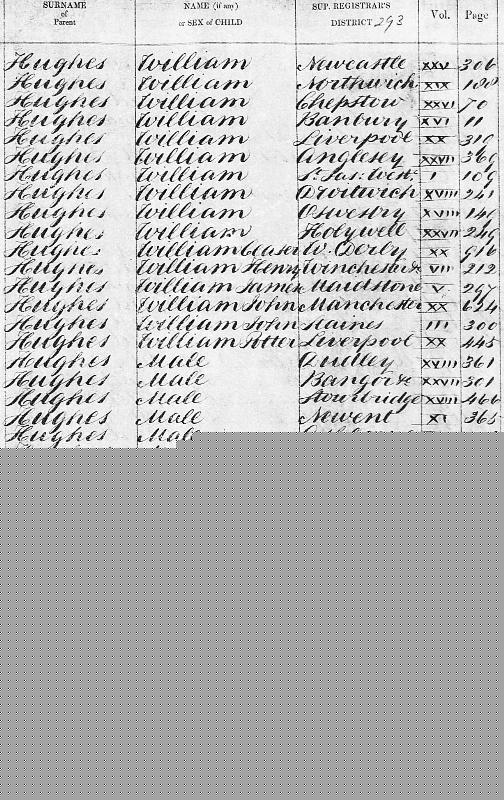 SURNAME of Parent NAME (if any) or SEX of CHILD SUP. REGISTRAR'S DISTRICT 293 Vol. Page
Hughes William Newcastle XXV 306
Hughes William Northwich XIX
Hughes William Chepstow XXVI 70
Hughes William Banbury XVI 11
Hughes William Liverpool XX 310
Hughes William Anglesey XXVII 366
Hughes William St. Jas. West. I 109
Hughes William Droitwich XVIII 241
Hughes William Oswestry XVIII 141
Hughes William Holywell XXVII 246
Hughes William W. Derby XX 916
Hughes William Henry Winchester & VII 212
Hughes William James Maidstone V 297
Hughes William John Manchester XX 634
Hughes William John Staines III 300
Hughes William Potter Liverpool XX 445
Hughes Male Dudley XVIII 361
Hughes Male Bangor & XXVII 301
Hughes Male Stourbridge XVIII 466
Hughes Male Newent XI 365
Hughes Male